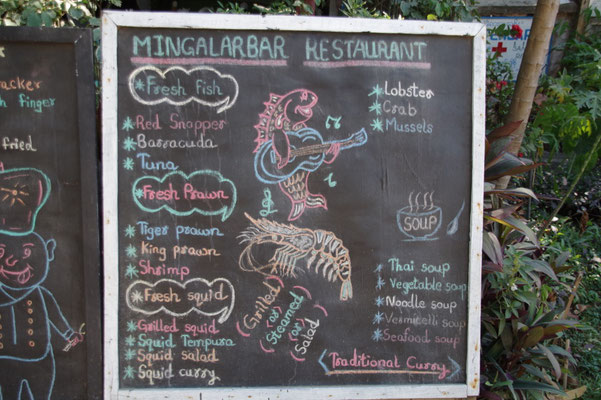 MINGALARBAR RESTAURANT
Fresh Fish
* Red Snapper
* Barracuda
* Tuna
Fresh Prawn
* Tiger prawn
* King prawn
* Shrimp
* Fresh squid
* Grilled squid
* Squid Tempura
* Squid salad
* Squid curry
Grilled
(or)
Steamed
(or)
Salad
* Lobster
* Crab
* Mussels
SOUP
* Thai soup
* Vegetable soup
* Noodle soup
* Vermicelli soup
* Seafood soup
Traditional Curry
racker
h finger
fried